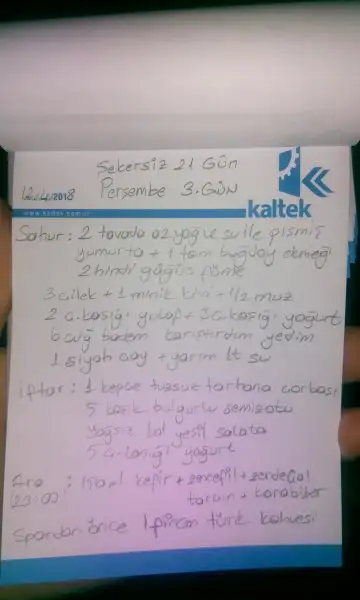 Şekersiz 21 Gün
12.4.2018 Perşembe 3.GÜN
kaltek
www.kaltek.com.tr
Sahur : 2 tavada az yağ ve su ile pişmiş
yumurta + 1 tam buğday ekmeği
2 hindi göğüs füme
3 çilek + 1 minik kivi + 1/2 muz
2 ç.kaşığı yulaf + 3 ç.kaşığı yoğurt
6 çiğ badem karıştırdım yedim
1 siyah çay + yarım lt su
iftar : 1 kepçe tarhana çorbası
5 kaşık bulgurlu semizotu
Yağsız bol yeşil salata
5 ç.kaşığı yoğurt
Ara : kefir + zencefil + zerdeçal
tarçın + karabiber
Spordan önce 1 fincan türk kahvesi